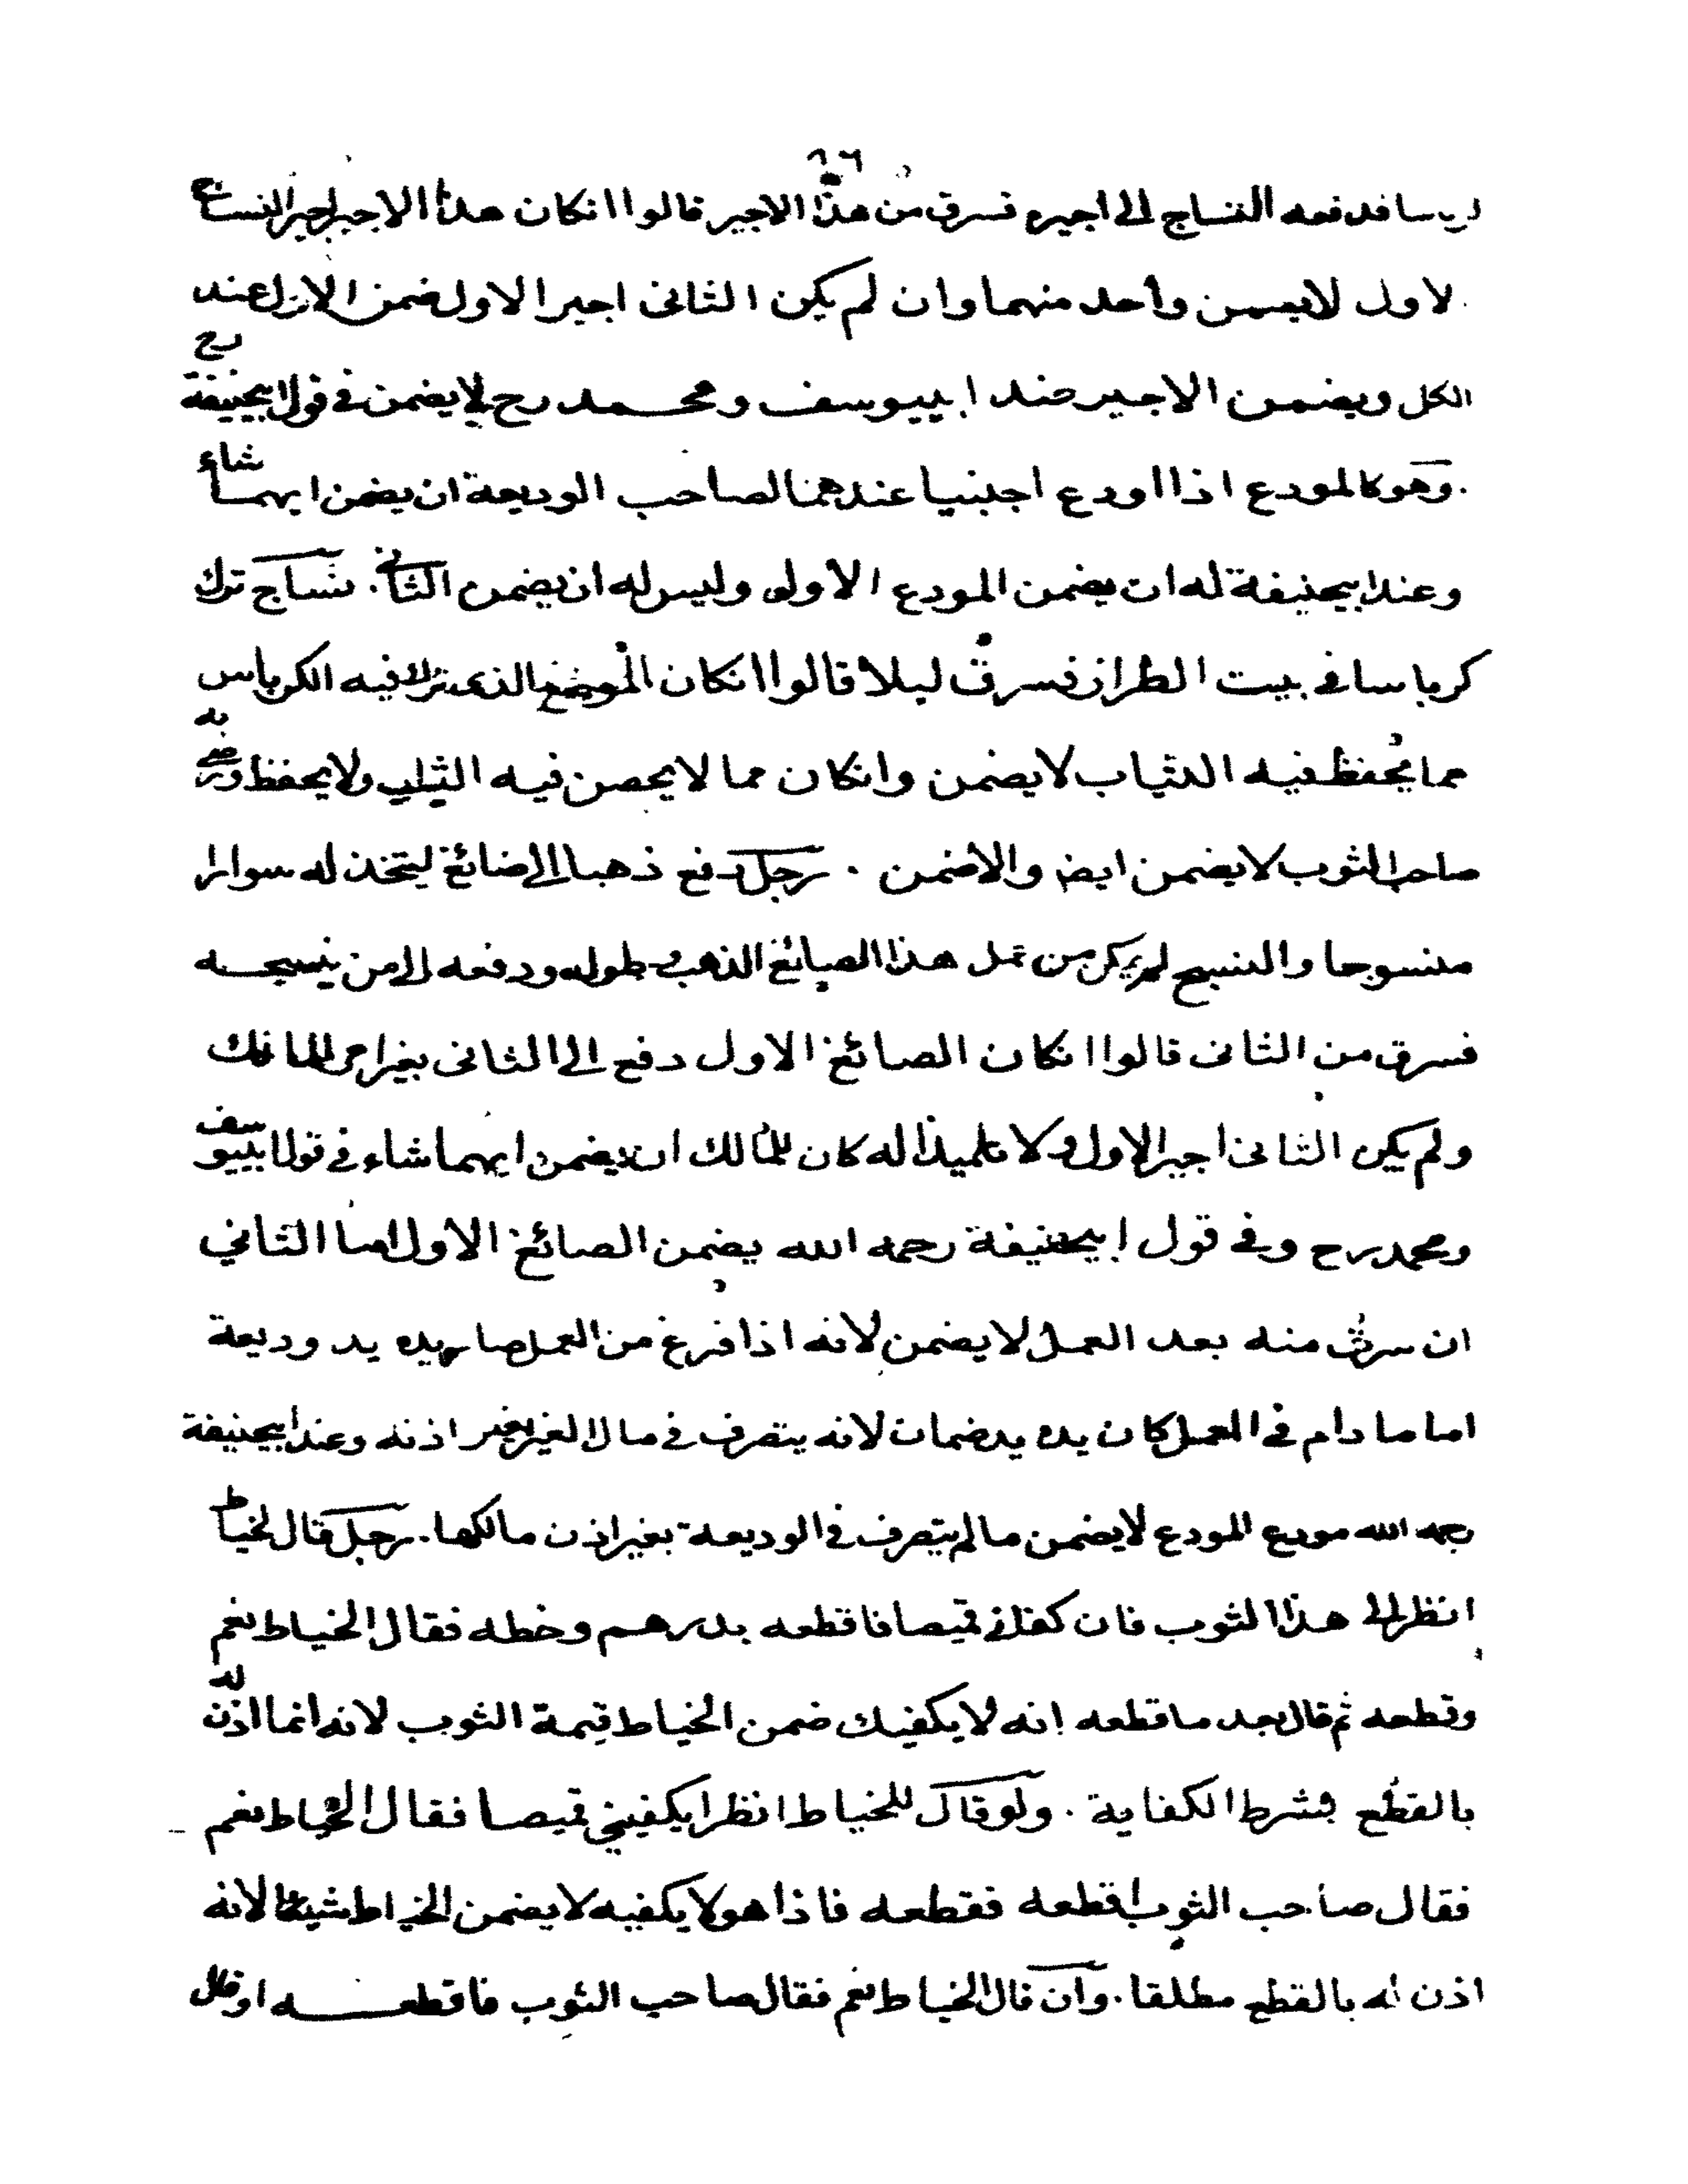 ٩٦
سا فدفعه النساج الى اجيره فسرق من هذا الاجير قالوا انكان هذا الاجير اجير النساج
لاول لايضمن واحد منهما وان لم يكن الثانى اجيرا لاول ضمن الاول عند
الكل ويضمن الاجير عند ابييوسف ومحمد رح لايضمن فى قول ابيحنيفة رح
وهو كالمودع اذا اودع اجنبيا عندهما لصاحب الوديعة ان يضمن ايهما شاء
وعند ابيحنيفة له ان يضمن المودع الاول وليس له ان يضمن الثانى . نساج ترك
كرباسا فى بيت الطراز فسرق ليلا قالوا انكان الموضع الذى ترك فيه الكرباس
مما يحفظ فيه الثياب لايضمن وانكان مما لايحصن فيه الثياب ولايحفظ ورضى به
صاحب الثوب لايضمن ايض والاضمن . رجل دفع ذهبا الى صائغ ليتخذ له سوارا
منسوجا والنسج لم يكن من عمل هذا الصائغ الذهب وطوله ودفعه الى من ينسجه
فسرق من الثانى قالوا انكان الصائغ الاول دفع الى الثانى بغير امر المالك
ولم يكن الثانى اجير الاول ولا تلميذا له كان للمالك ان يضمن ايهما شاء فى قول ابييوسف
ومحمد رح وفى قول ابيحنيفة رحمه الله يضمن الصائغ الاول اما الثانى
ان سرق منه بعد العمل لايضمن لانه اذا فرغ من العمل صار يده يد وديعة
اما ما دام فى العمل كان يده يد ضمان لانه يتصرف فى مال الغير بغير اذنه وعند ابيحنيفة
رحمه الله مودع المودع لايضمن مالم يتصرف فى الوديعة بغير اذن مالكها . رجل قال لخياط
انظر الى هذا الثوب فان كفانى قميصا فاقطعه بدرهم وخطه فقال الخياط نعم
وقطعه ثم قال بعد ما قطعه انه لا يكفيك ضمن الخياط قيمة الثوب لانه انما اذن له
بالقطع بشرط الكفاية . ولو قال للخياط انظر ايكفينى قميصا فقال الخياط نعم
فقال صاحب الثوب اقطعه فقطعه فاذا هو لا يكفيه لايضمن الخياط شيئا لانه
اذن له بالقطع مطلقا . وان قال الخياط نعم فقال صاحب الثوب فاقطعه او قال